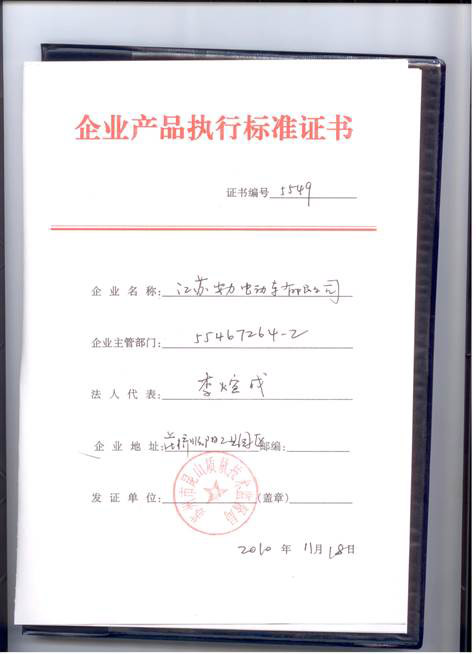 企业产品执行标准证书
证书编号 5549
企业名称: 江苏 力电动车有限公司
企业主管部门: 55467264-2
法人代表: 李 成
企业地址: 工业园区 邮编:
发证单位: (盖章)
市昆山质量技术监督局
2010 年 11月18日